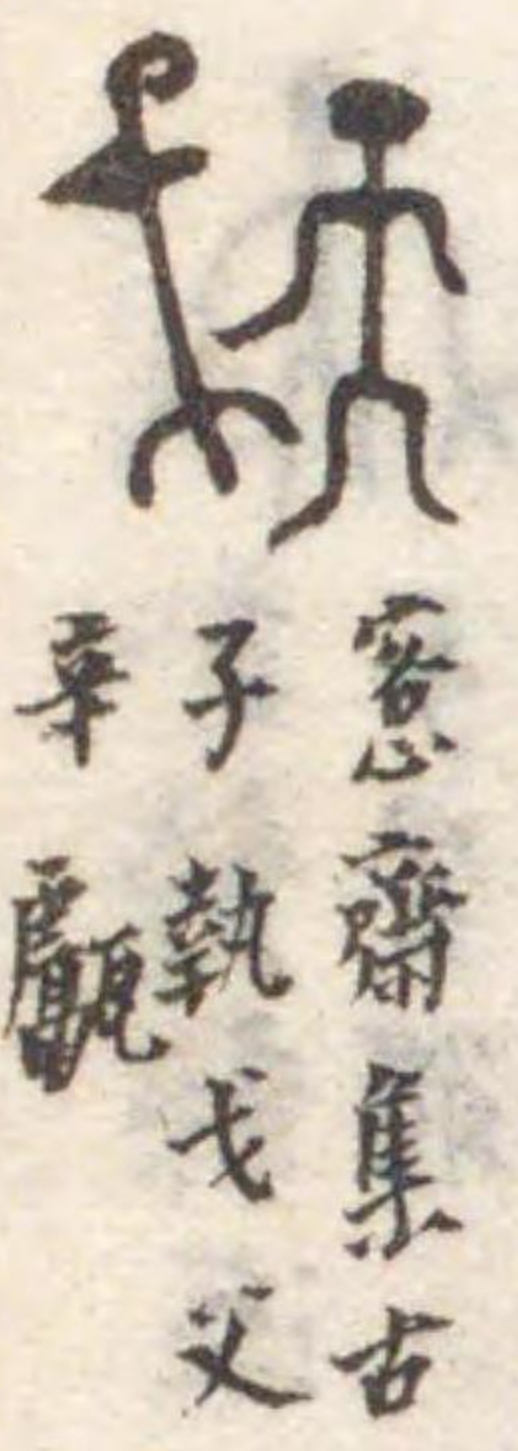 愙齋集古
子執戈父
辛甗